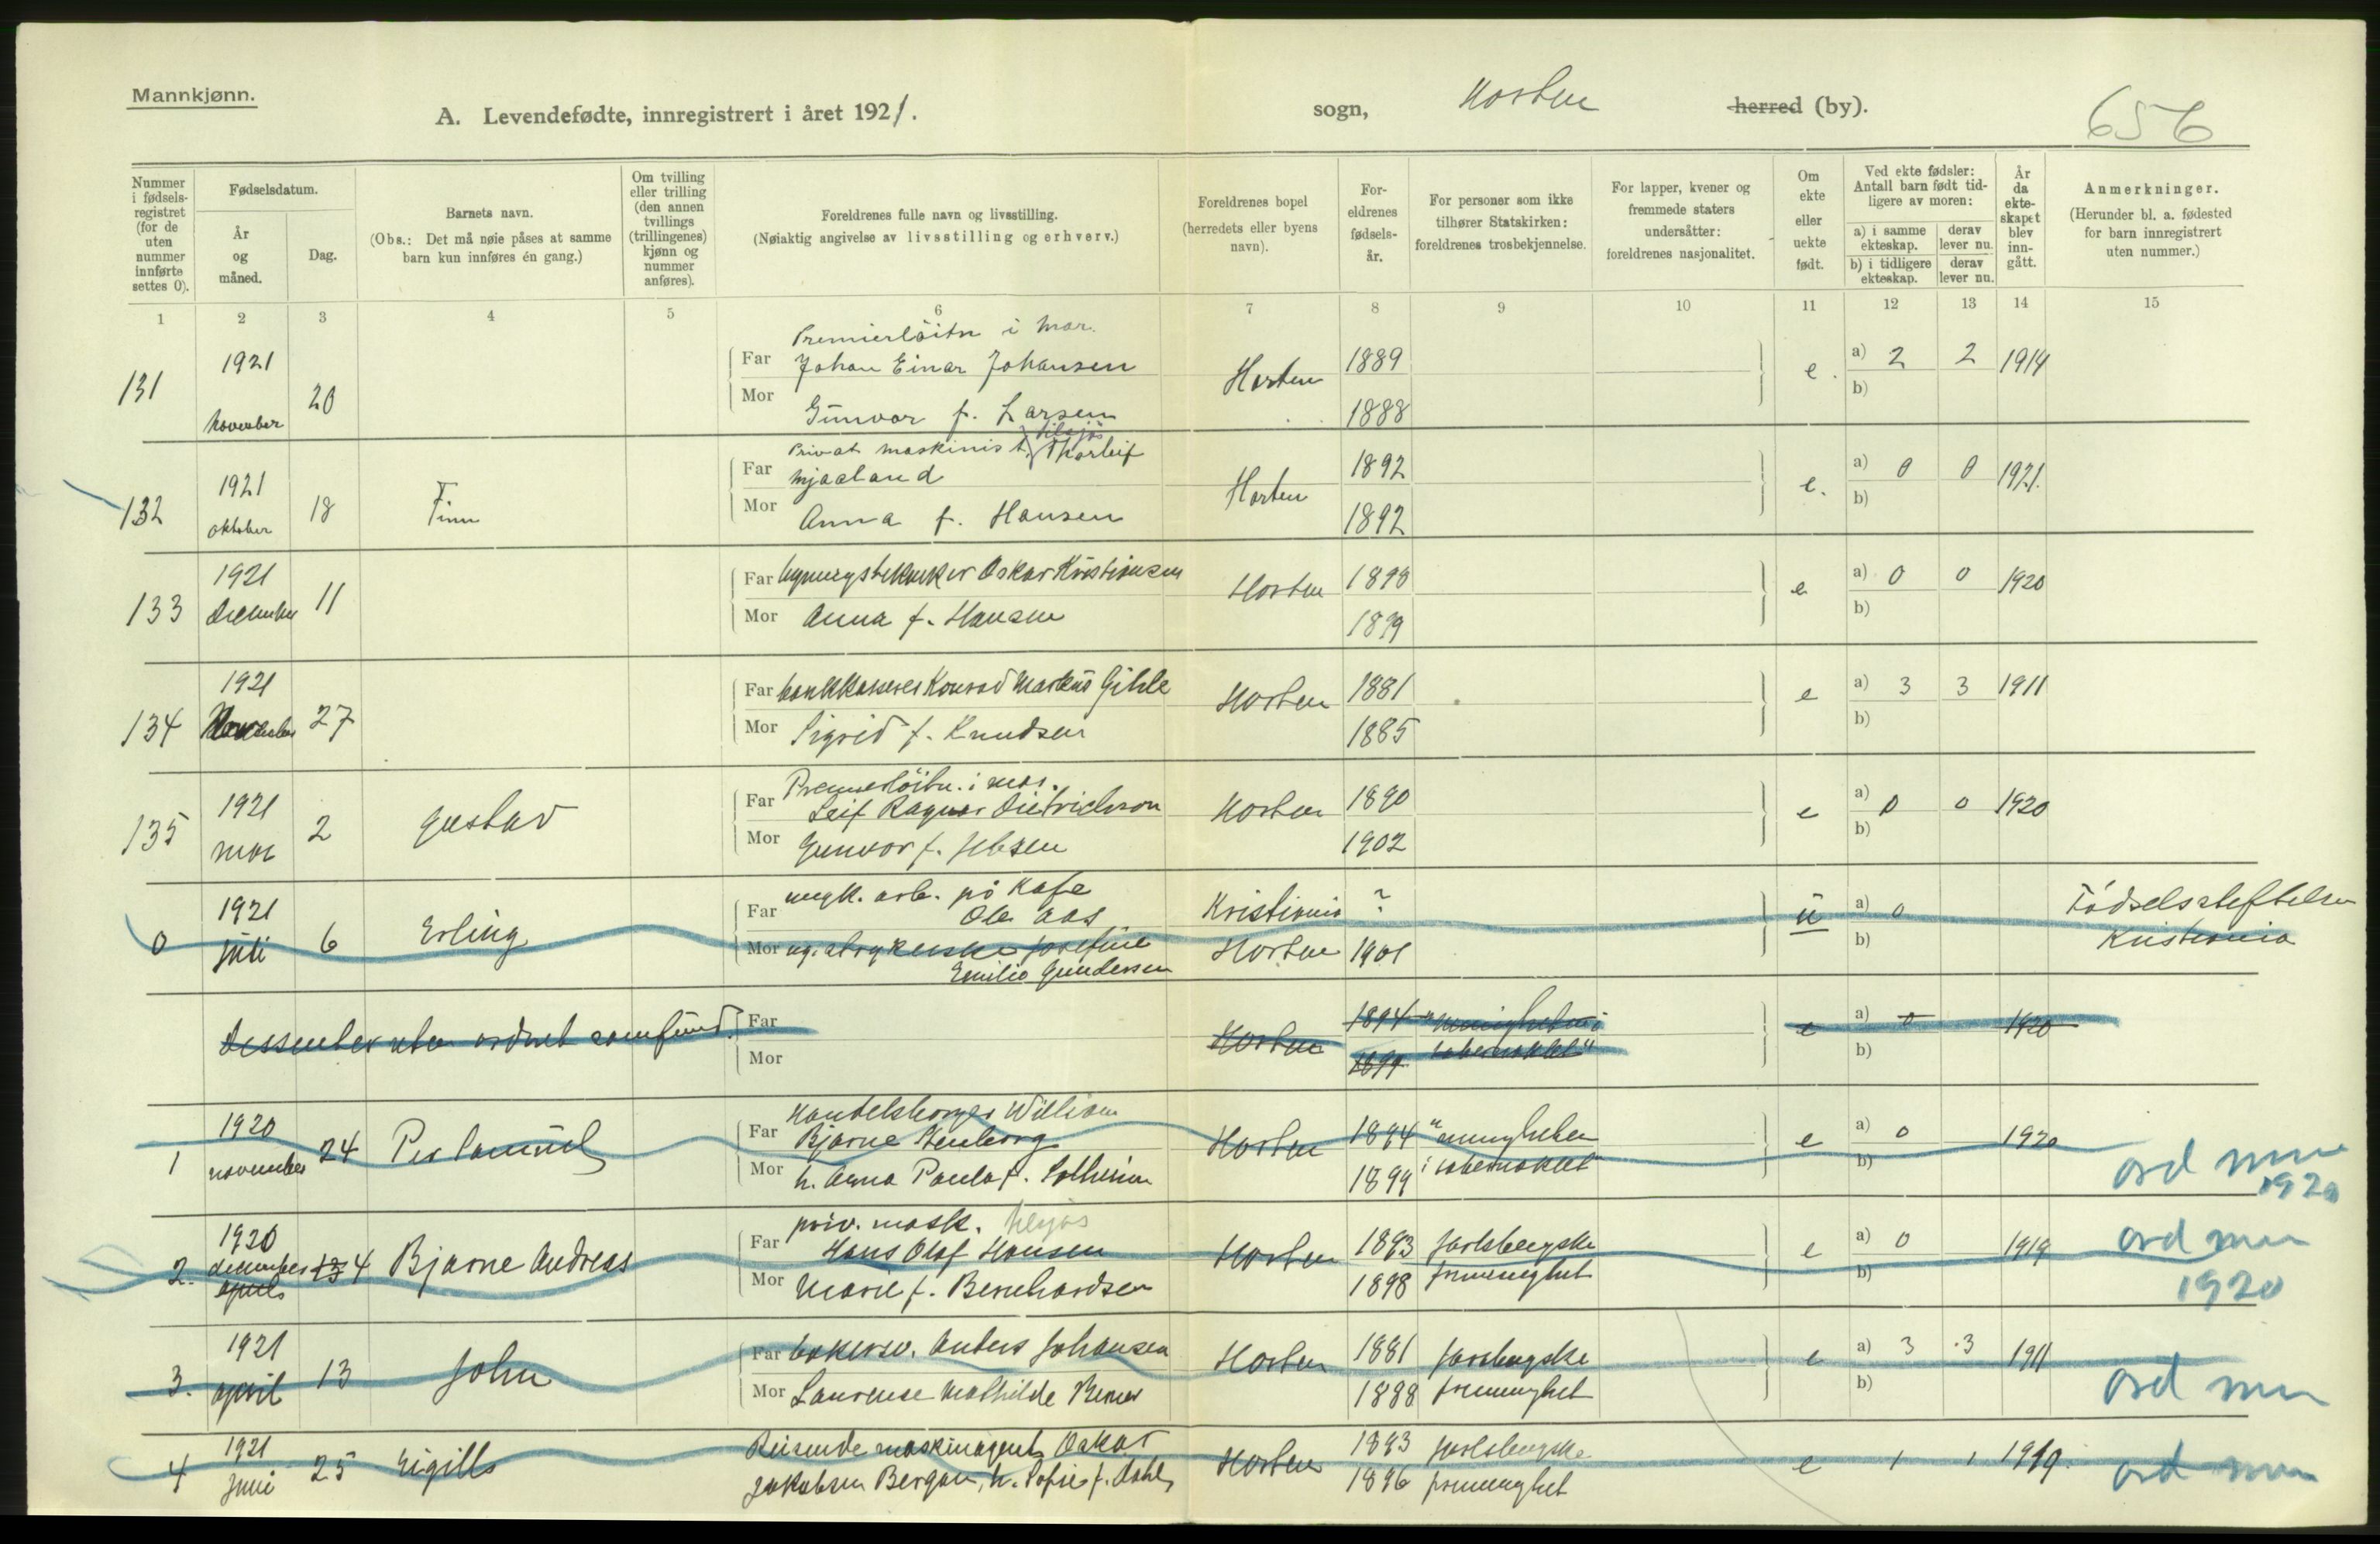 Mannkjønn.
A. Levendefødte, innregistrert i året 1921.
sogn, Horten herred (by).
656
Nummer i fødsels-registret (for de uten nummer innførte settes 0).
Fødselsdatum.
År og måned.
Dag.
Barnets navn.
(Obs.: Det må nøie påses at samme barn kun innføres én gang.)
Om tvilling eller trilling (den annen tvillings (trillingenes) kjønn og nummer anføres).
Foreldrenes fulle navn og livsstilling.
(Nøiaktig angivelse av livsstilling og erhverv.)
Foreldrenes bopel (herredets eller byens navn).
For-eldrenes fødsels-år.
For personer som ikke tilhører Statskirken: foreldrenes trosbekjennelse.
For lapper, kvener og fremmede staters undersåtter: foreldrenes nasjonalitet.
Om ekte eller uekte født.
Ved ekte fødsler: Antall barn født tid-ligere av moren:
a) i samme ekteskap.
derav lever nu.
b) i tidligere ekteskap.
derav lever nu.
År da ekte-skapet blev inn-gått.
Anmerkninger.
(Herunder bl. a. fødested for barn innregistrert uten nummer.)
1 2 3 4 5 6 7 8 9 10 11 12 13 14 15
131 1921 november 20
Premierløitn i mar.
Far Johan Einar Johansen Horten 1889 e. a) 2 2 1914
Mor Gunvor f. Larsen 1888 b)
132 1921 oktober 18 Finn
Privat maskinist tilsjøs Thorleif
Far Mjaaland Horten 1892 e. a) 0 0 1921.
Mor Anna f. Hansen 1892 b)
133 1921 December 11
Far bygningstekniker Oskar Kristiansen Horten 1898 e a) 0 0 1920
Mor Anna f. Hansen 1899 b)
134 1921 November 27
Far bankkasserer Konrad Markus Gihle Horten 1881 e a) 3 3 1911
Mor Sigrid f. Knudsen 1885 b)
135 1921 mai 2 Gustav
Premierløitn. i mar.
Far Leif Ragnar Dietrichson Horten 1890 e a) 0 0 1920
Mor Gunvor f. Jebsen 1902 b)
0 1921 juli 6 Erling
Far ungk. arb. på Kafe Kristiania ? u a) 0 Fødselsstiftelsen
Ole Aas
Mor ug. strykerske Josefine Horten 1901 b) Kristiania
Emilie Gundersen
Dissenter uten ordnet samfund. Far Horten 1894 "menigheten i e a) 0 1920
Mor 1899 tabernaklet" b)
1 1920 november 24 Per Samuel
Handelsborger William
Far Bjarne Stenborg Horten 1894 "menigheten e a) 0 1920
Mor h. Anna Paula f. 1899 i tabernaklet b)
ord min 1920
2. 1920 december april 13 4 Bjarne Andreas
priv. mask. tilsjøs
Far Hans Olaf Hansen Horten 1893 Jarlsbergske e a) 0 1919
Mor Marie f. Bernhardsen 1898 frimenighet b)
ord min 1920
3. 1921 april 13 John
Far bakersv. Anders Johansen Horten 1881 Jarlsbergske e a) 3 3 1911
Mor Laurense Mathilde 1888 frimenighet b)
ord min
4 1921 juni 25 Eigills
Reisende maskinagent Oskar Horten 1893 Jarlsbergske e 1 1 1919.
Jakobsen Bergan, h. Sofie f. Dahl 1896 frimenighet
ord min